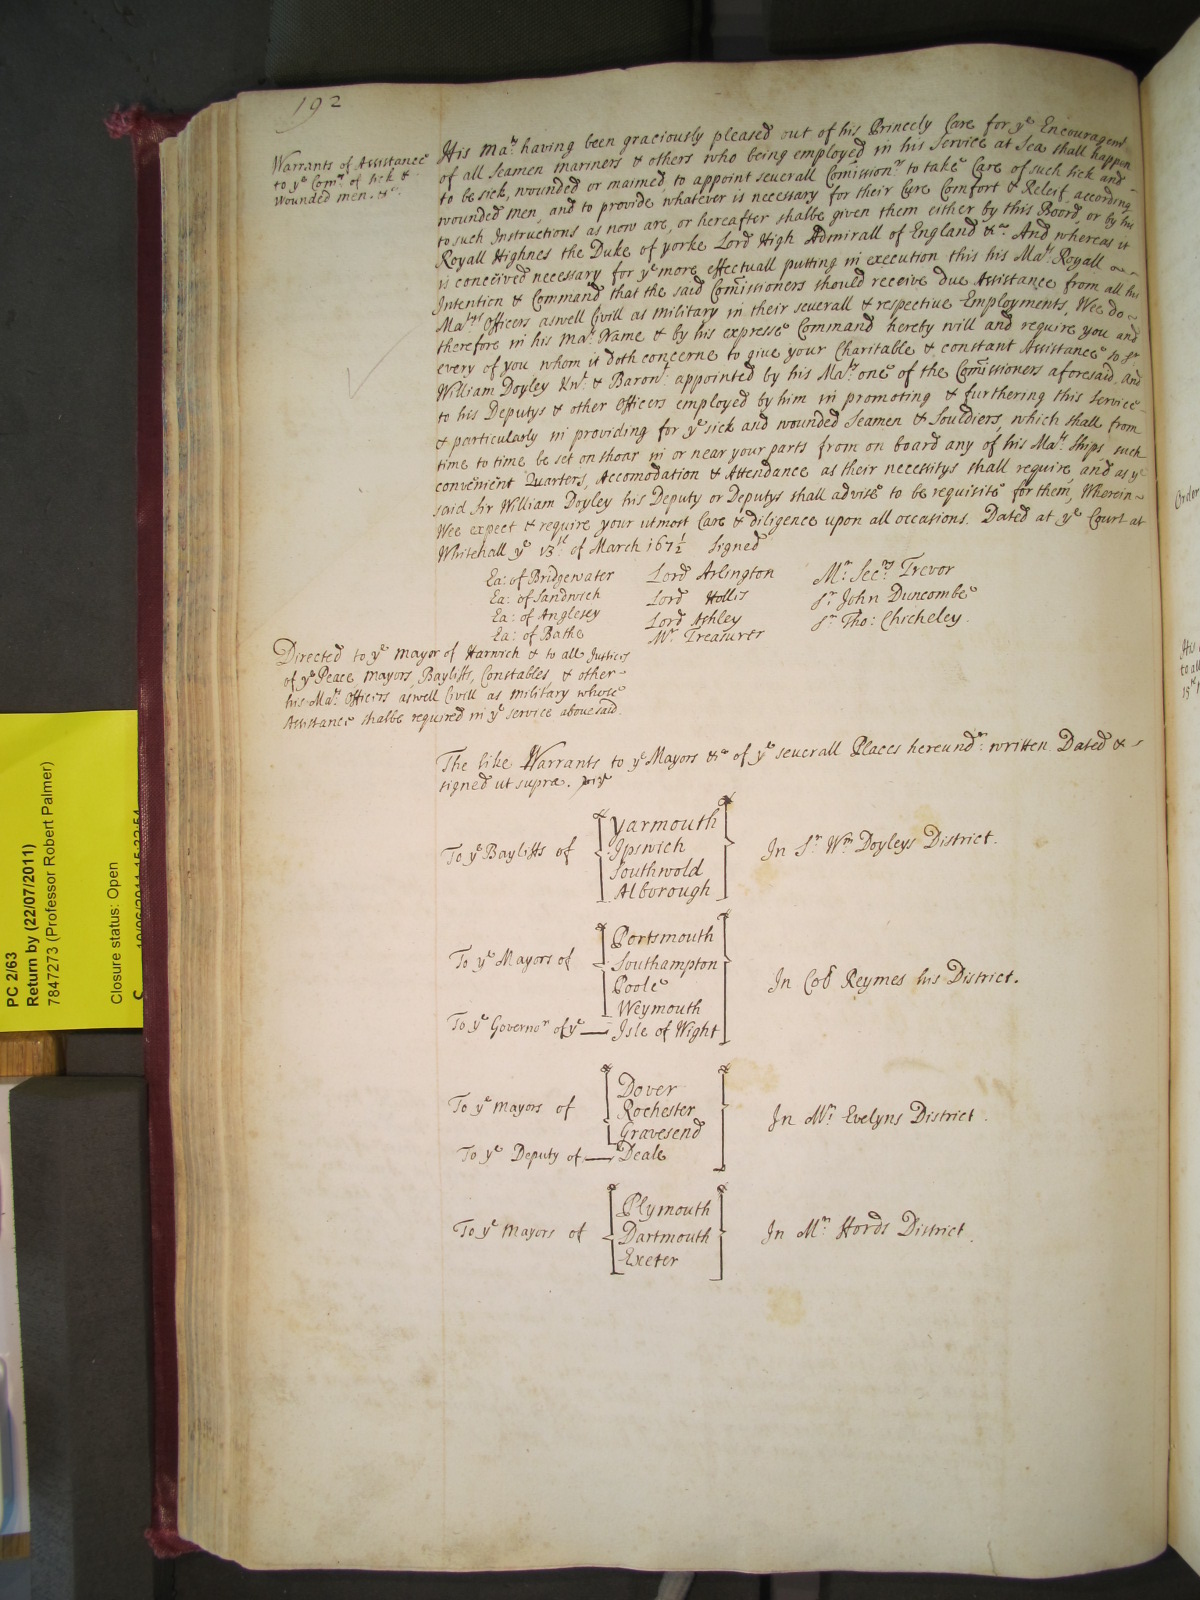 192
Warrants of Assistance
to yᵉ Comʳˢ of sick &
wounded men. &ᶜ.
His Maᵗʸ having been graciously pleased out of his Princely Care for yᵉ Encouragemᵗ
of all Seamen Mariners & others who being employed in his Service at Sea shall happen
to be sick, wounded or maimed, to appoint severall Comissionʳˢ to take Care of such sick and
wounded men, and to provide whatever is necessary for their Cure Comfort & Releif, according
to such Instructions as now are, or hereafter shalbe given them either by this Board, or by his
Royall Highnes the Duke of yorke Lord High Admirall of England &ᶜᵃ. And whereas it
is conceived necessary for yᵉ more effectuall putting in execution this his Maᵗˢ Royall
Intention & Command that the said Comissioners should receive due Assistance from all his
Maᵗⁱᵉˢ Officers aswell Civill as Military in their severall & respective Employments, Wee do
therefore in his Maᵗˢ Name & by his expresse Command hereby will and require you and
every of you whom it doth concerne to give your Charitable & constant Assistance to Sʳ
William Doyley Knᵗ & Baronᵗ appointed by his Maᵗʸ one of the Comissioners aforesaid, and
to his Deputys & other Officers employed by him in promoting & furthering this Service
& particularly in providing for yᵉ sick and wounded Seamen & Souldiers, which shall from
time to time be set on shoar in or near your parts from on board any of his Maᵗˢ Ships such
convenient Quarters, Accomodation & Attendance as their necessitys shall require, and as yᵉ
said Sir William Doyley his Deputy or Deputys shall advise to be requisite for them, Wherein
Wee expect & require your utmost Care & diligence upon all occasions. Dated at yᵉ Court at
Whitehall yᵉ 13ᵗʰ of March 167½ Signed
Ea: of Bridgewater Lord Arlington Mʳ Secʳʸ Trevor
Ea: of Sandwich Lord Hollis Sʳ John Duncombe
Ea: of Anglesey Lord Ashley Sʳ Tho: Chicheley.
Ea: of Bathe Mʳ Treasurer
Directed to yᵉ Mayor of Harwich & to all Justices
of yᵉ Peace Mayors, Bayliffs, Constables, & other
his Maᵗˢ Officers aswell Civill as Military whose
Assistance shalbe required in yᵉ Service abovesaid.
The like Warrants to yᵉ Mayors &ᶜᵃ of yᵉ severall Places hereundʳ: written Dated &
signed ut supra. vizᵗ
To yᵉ Bayliffs of Yarmouth
Ipswich
Southwold
Alborough
In Sʳ Wᵐ Doyleys District.
To yᵉ Mayors of Portsmouth
Southampton
Poole
Weymouth
To yᵉ Governoʳ of yᵉ Isle of Wight
In Coll Reymes his District.
To yᵉ Mayors of Dover
Rochester
Gravesend
To yᵉ Deputy of Deale
In Mʳ Evelyns District.
To yᵉ Mayors of Plymouth
Dartmouth
Exeter
In Mʳ Hords District.
Order
PC 2/63
Return by (22/07/2011)
7847273 (Professor Robert Palmer)
Closure status: Open